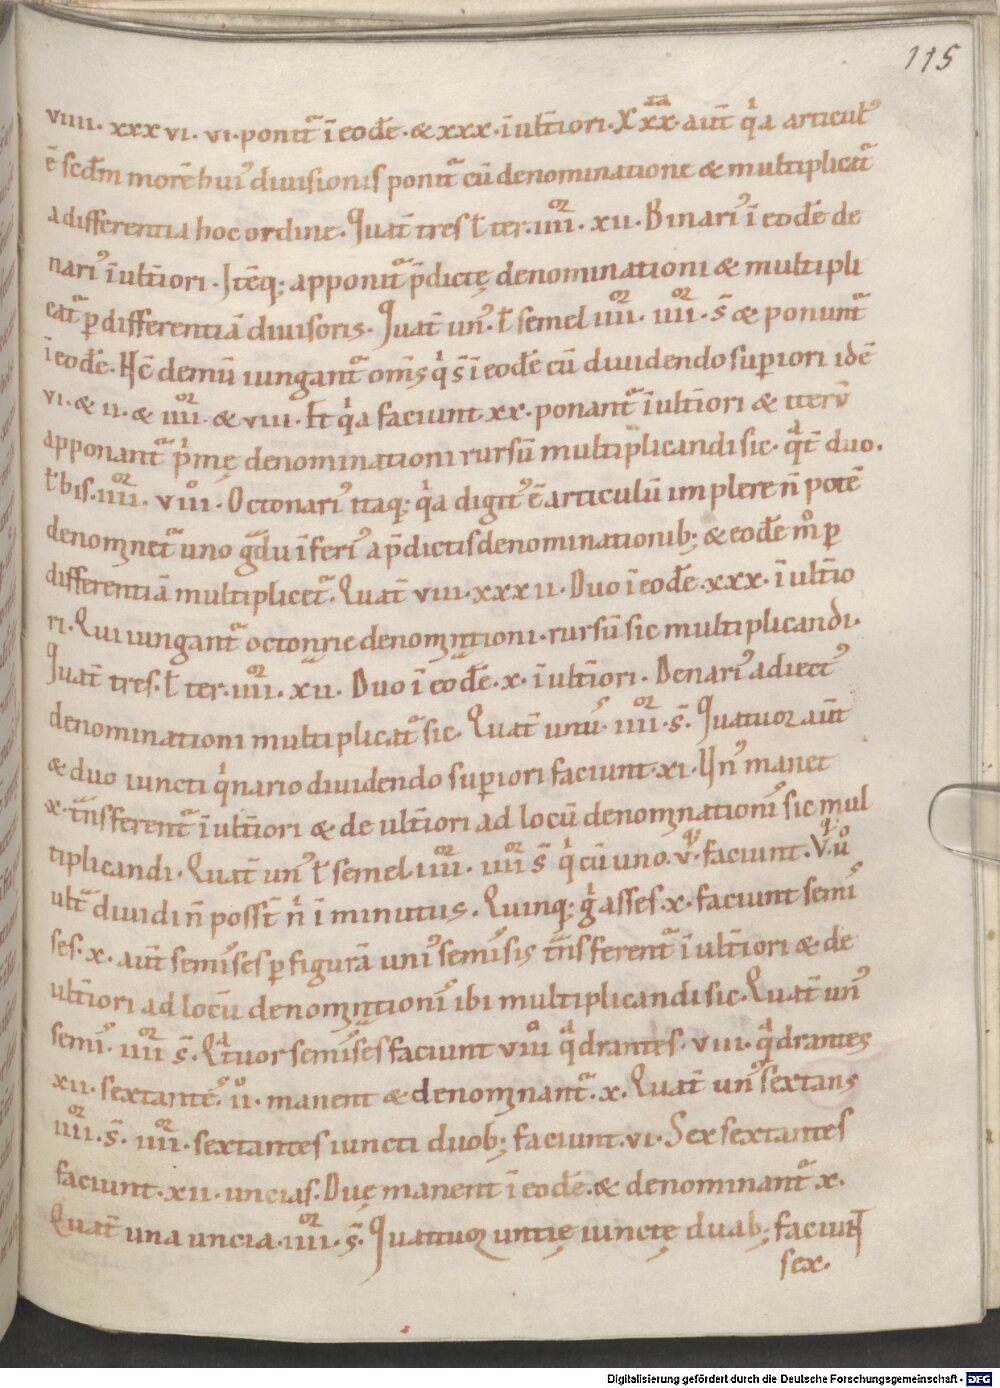 115
viiii. xxxvi. vi. ponit᷑ ī eodē. & xxx. ī ult̄iori. xxx. aut̄ qͥa articul᷒
ē scdm̄ morē hui᷒ diuisionis ponit᷑ cū denominatione & multiplicat᷑
a differentia hoc ordine. Quat̄ tres ł ter. iiii. xii. Binari᷒ ī eodē de
nari᷒ ī ult̄iori. Itēq; apponit᷑ p̄dictę denominationi & multipli
cat᷑ ꝑ differentiā diuisoris. Quat̄ un᷒ ł semel iiii. iiii. s̄ & ponunt᷑
ī eodē. Hc̄ demū iungant᷑ om̄s qͥ s̄ ī eodē cū diuidendo suꝑiori idē
vi. & ii. & iiii. & viii. & qͥa faciunt xx. ponant᷑ ī ult̄iori & iterū
apponant᷑ pͥmę denominationi rursū multiplicandi sic. qͣt̄ duo.
ł bis. iiii. viii. Octonari᷒ itaq; qͥa digit᷒ ē articulū implere n̄ potē
denom̄net᷑ uno gͣdu īferi᷒ a p̄dictis denominationib; & eodē mͦ ꝑ
differentiā multiplicet᷑. Quat̄ viii. xxxii. Duo ī eodē. xxx. ī ult̄io
ri. Qui iungant᷑ octon̄rie denom̄ntioni. rursū sic multiplicandi.
Quat̄ tres. ł ter. iiii. xii. Duo ī eodē. x. ī ult̄iori. Denari᷒ adiect᷒
denominationi multiplicat᷑ sic. Quat̄ unus. iiii. s̄. Quatuor aut̄
& duo iuncti qͥnario diuidendo suꝑiori faciunt. xi. Un᷒ manet
x. tͣnsferent᷑ ī ult̄iori & de ult̄iori ad locū denom̄nationis sic mul
tiplicandi. Quat̄ un᷒ ł semel. iiii. iiii s̄ qͥ cū uno. v. faciunt. V. ůo
ult͛ diuidi n̄ poss̄t nͥ ī minutiis. Quinq; gͥ asses. x. faciunt semi
ses. x. aut̄ semises ꝑ figurā uni᷒ semisis tͣnsferent᷑ ī ult̄iori & de
ult̄iori ad locū denom̄ntionis ibi multiplicandi sic. Quat̄ un᷒
semis. iiii s̄. Qͣtuor semises faciunt viii qͣdrantes. viii. qͣdrantes
xii. sextantes. ii. manent & denom̄nant᷑. x. Quat̄ un᷒ sextans
iiii. s̄. iiii. sextantes iuncti duob; faciunt. vi. Sex sextantes
faciunt. xii. uncias. Duę manent ī eodē. & denominant᷑ x.
Quat̄ una uncia. iiii. s̄. Quattuor untię iunctę duab; faciunt
sex.
Digitalisierung gefördert durch die Deutsche Forschungsgemeinschaft - DFG